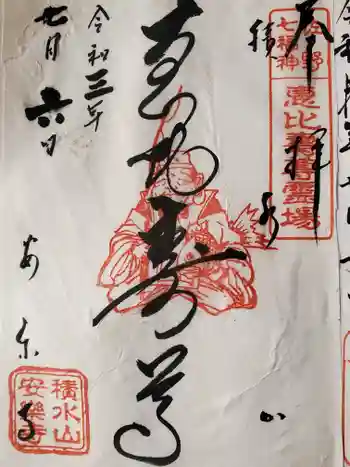 奉拝
佐野
七福神
恵比寿尊霊場
積水山
恵比寿尊
安楽寺
令和三年
七月六日
積水山
安樂寺